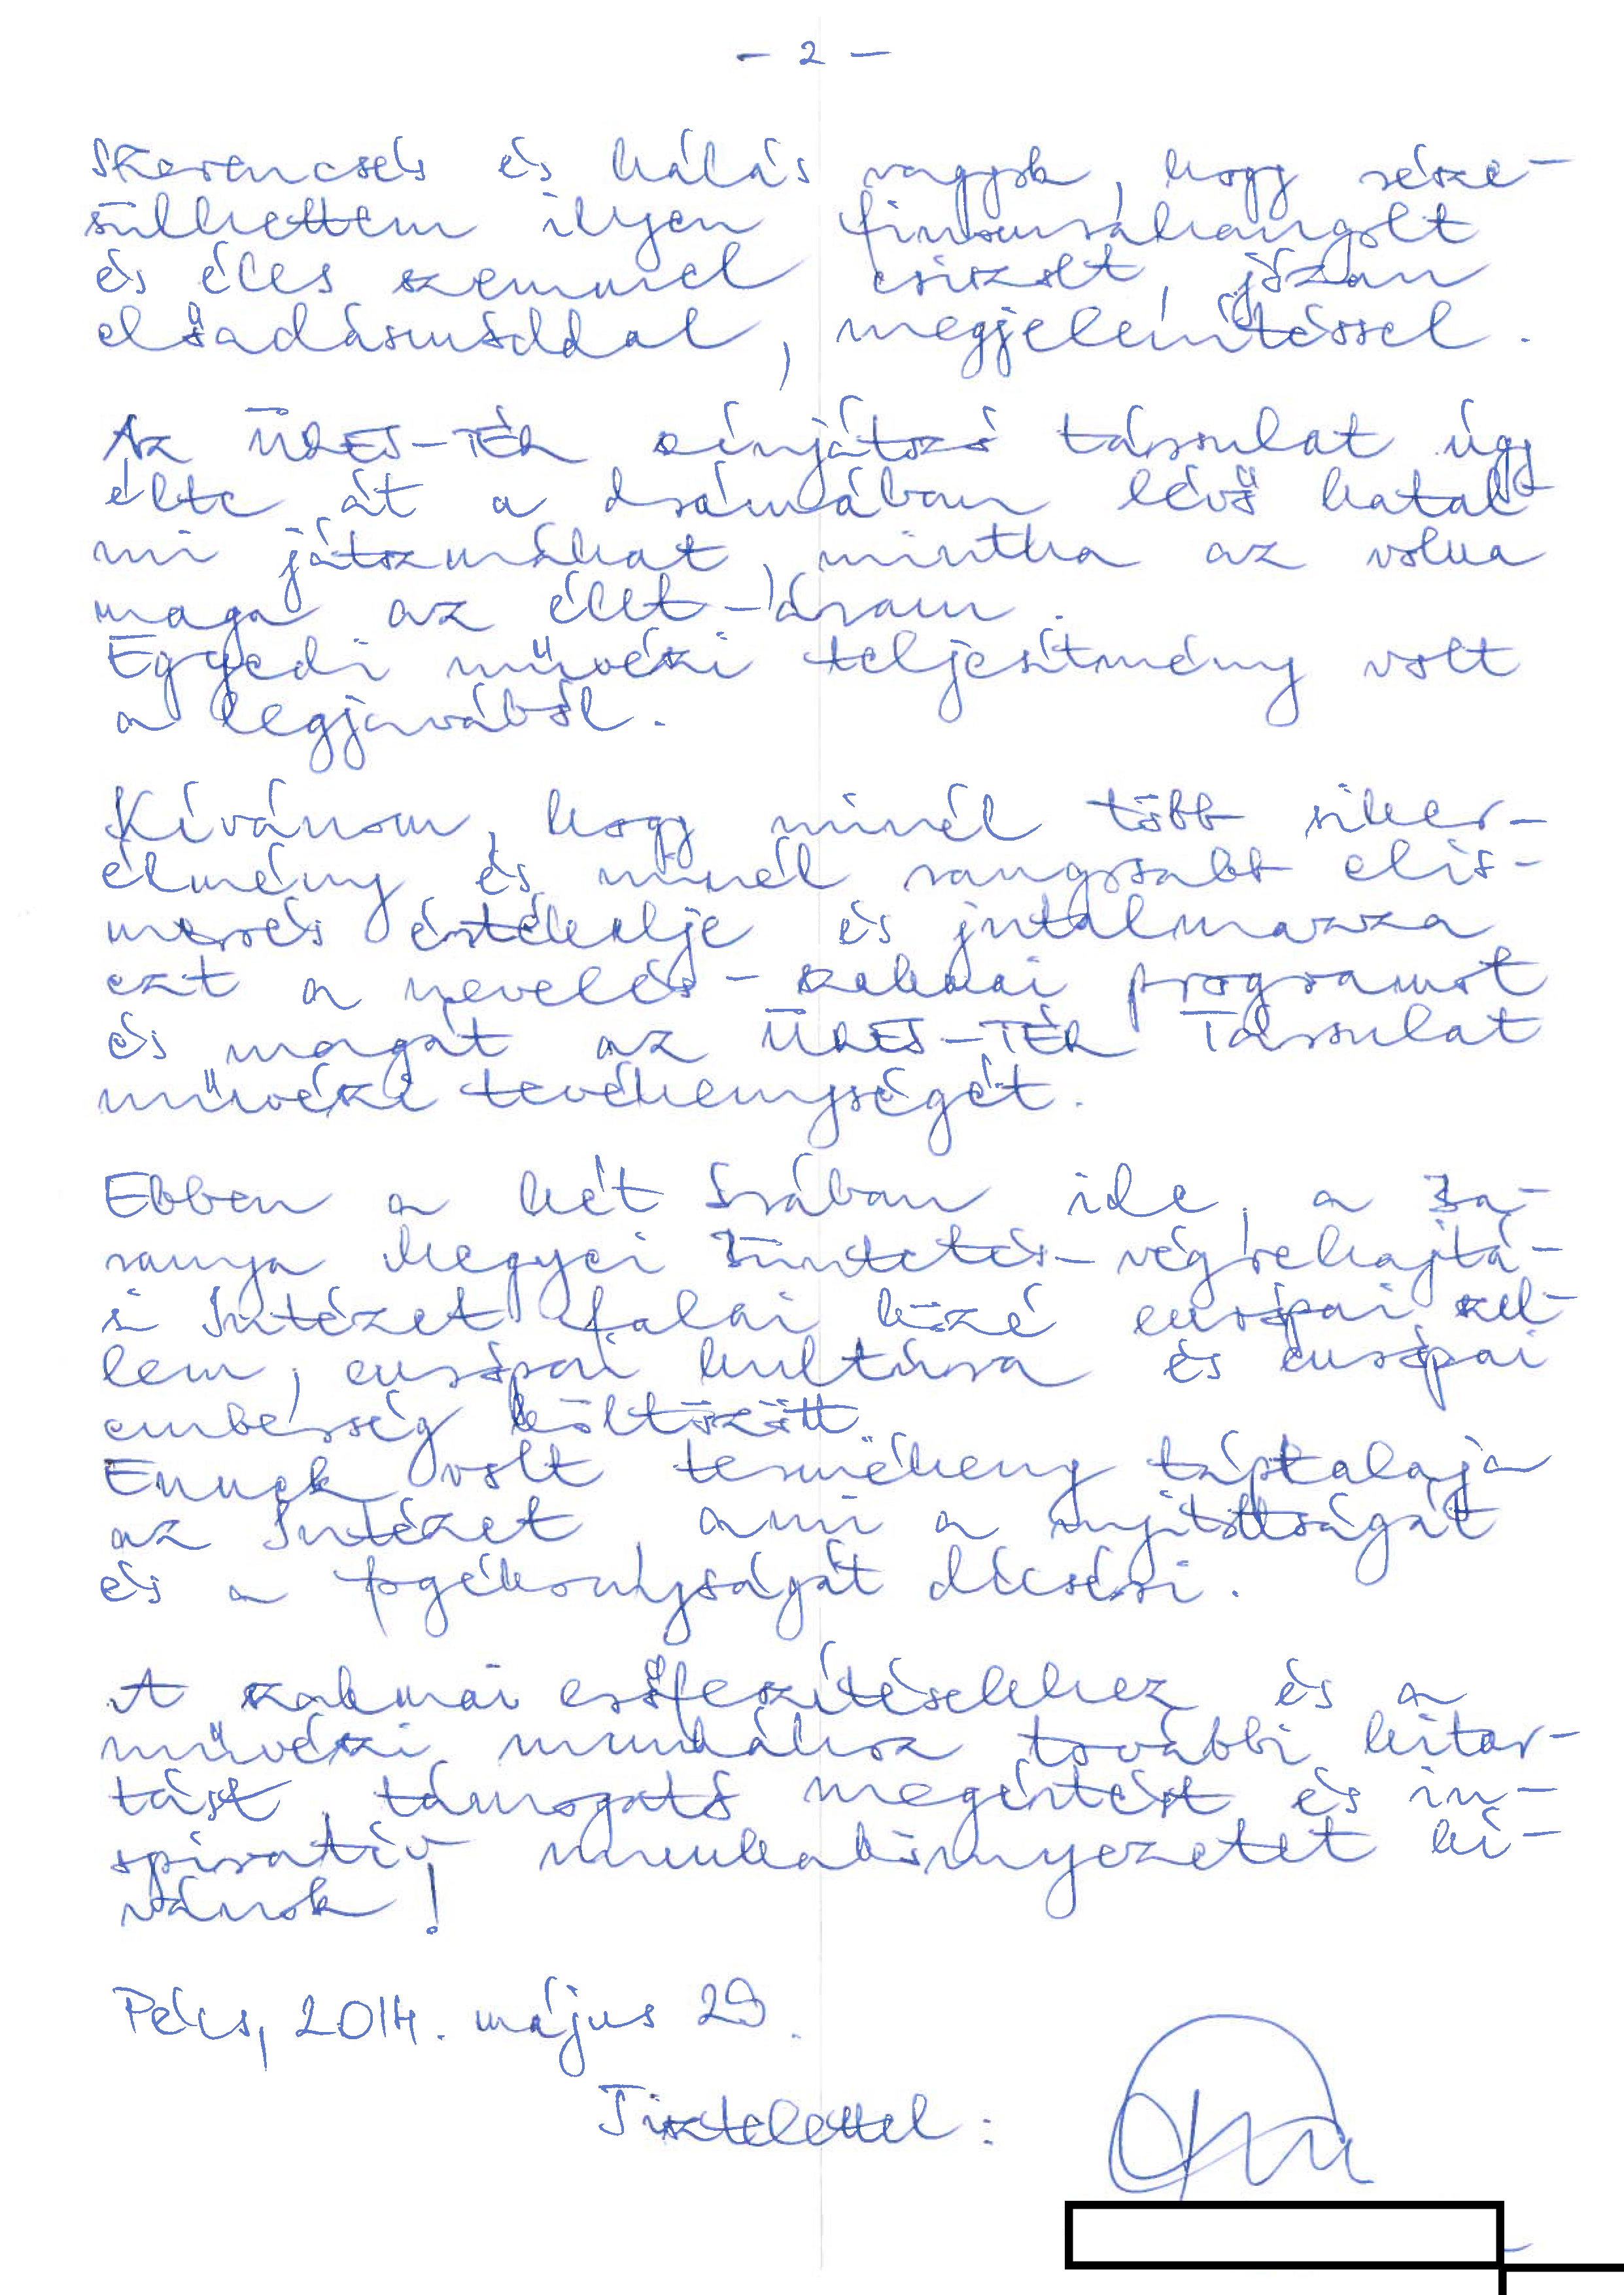 - 2 -
Szerencsés és hálás vagyok, hogy része-
sülhettem ilyen finomráhangolt
és éles szemmel csiszolt, józan
előadásmóddal, megjelenítéssel.
Az ÜRES-TÉR színjátszó társulat úgy
élte át a drámában lévő hatal-
mi játszmákat, mintha az volna
maga az élet-dráma.
Egyedi művészi teljesítmény volt
a legjavából.
Kívánom, hogy minél több siker-
élmény és minél rangosabb elis-
merés értékelje és jutalmazza
ezt a nevelés-szakmai programot
és magát az ÜRES-TÉR Társulat
művészi tevékenységét.
Ebben a két órában ide, a Ba-
ranya Megyei Büntetés-végrehajtá-
si Intézet falai közé európai szel-
lem, európai kultúra és európai
emberség költözött.
Ennek volt termékeny táptalaja
az Intézet, ami a nyitottságát
és a fogékonyságát dícséri.
A szakmai erőfeszítésekhez és a
művészi munkához további kitar-
tást, támogató megértést és in-
spiratív munkakörnyezetet kí-
vánok!
Pécs, 2014. május 29.
Tisztelettel: